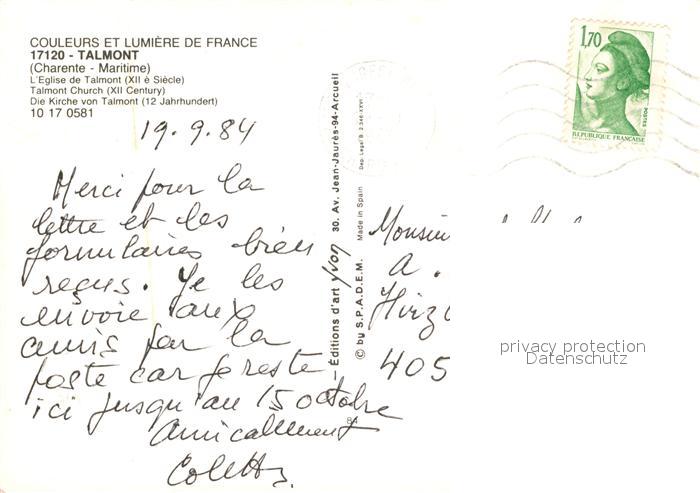 COULEURS ET LUMIÈRE DE FRANCE
17120 - TALMONT
(Charente - Maritime)
L'Eglise de Talmont (XII è Siècle)
Talmont Church (XII Century)
Die Kirche von Talmont (12 Jahrhundert)
10 17 0581
19.9.84
Merci pour la
lettre et les
formulaires bien
reçus. Je les
envoie aux
amis par la
poste car je reste
ici jusqu'au 15 octobre
84
Amicalement
Colette
Éditions d'art Yvon 30. Av. Jean-Jaurès-94-Arcueil
© by S.P.A.D.E.M. Made in Spain Dep. Legal B. 2.346-XXVI
1,70
POSTES
REPUBLIQUE FRANÇAISE
Monsieur
A.
405
privacy protection
Datenschutz